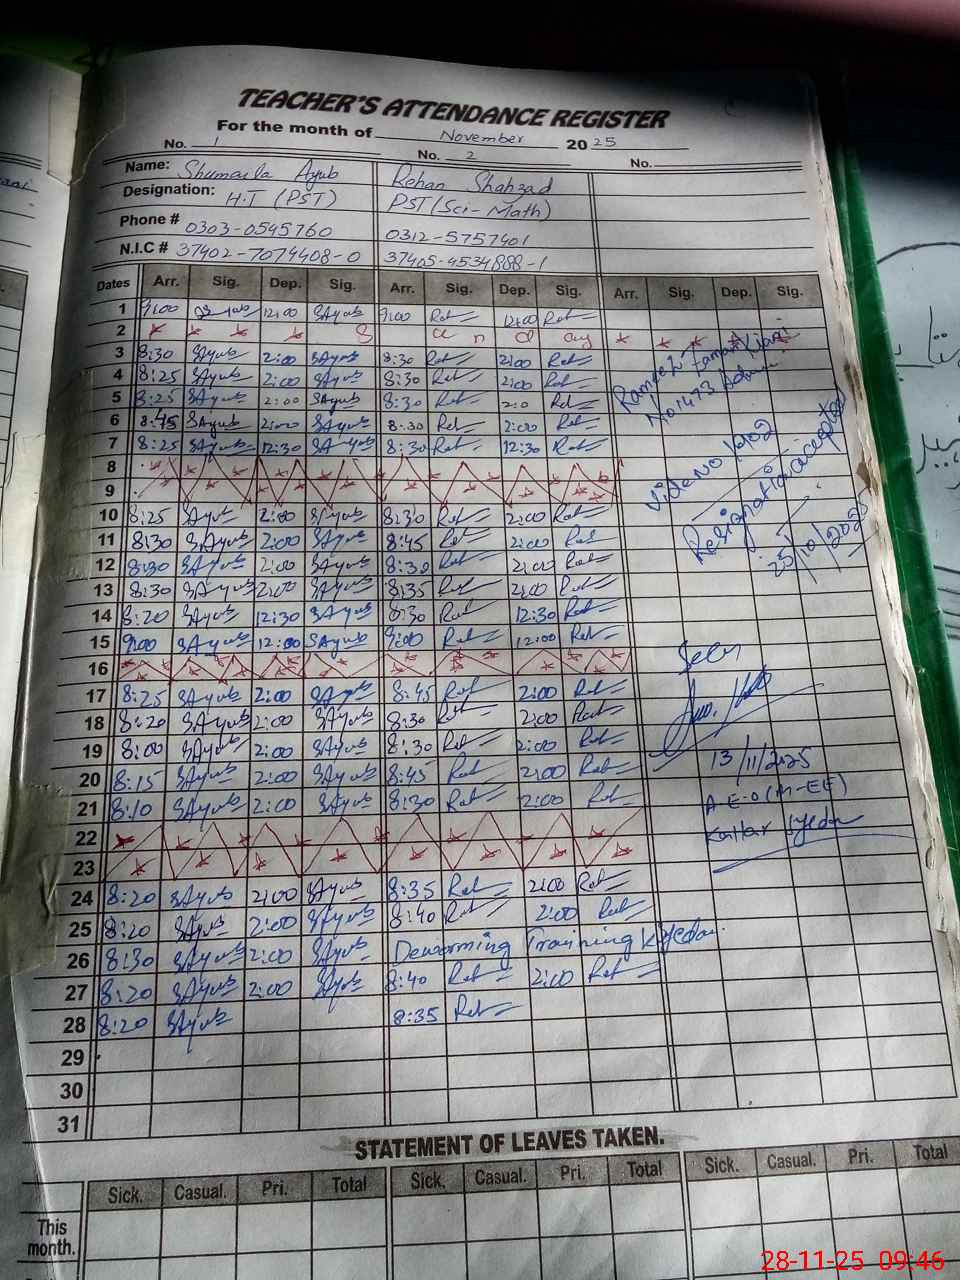 TEACHER'S ATTENDANCE REGISTER
For the month of November 2025
No. 1 No. 2 No.
Name: Shumaila Ayub Rehan Shahzad
Designation: H.T (PST) PST (Sci-Math)
Phone # 0303-0545760 0312-5757401
N.I.C # 37402-7074408-0 37405-4534888-1
Dates Arr. Sig. Dep. Sig. Arr. Sig. Dep. Sig. Arr. Sig. Dep. Sig.
1 9:00 SAyub 12:00 SAyub 9:00 Reh 12:00 Reh
2 S u n d ay
3 8:30 SAyub 2:00 SAyub 8:30 Reh 2:00 Reh
4 8:25 SAyub 2:00 SAyub 8:30 Reh 2:00 Reh
5 8:25 SAyub 2:00 SAyub 8:30 Reh 2:0 Reh
6 8:45 SAyub 2:00 SAyub 8:30 Reh 2:00 Reh
7 8:25 SAyub 12:30 SAyub 8:30 Reh 12:30 Reh
8
9
10 8:25 SAyub 2:00 SAyub 8:30 Reh 2:00 Reh
11 8:30 SAyub 2:00 SAyub 8:45 Reh 2:00 Reh
12 8:30 SAyub 2:00 SAyub 8:30 Reh 2:00 Reh
13 8:30 SAyub 2:00 SAyub 8:35 Reh 2:00 Reh
14 8:20 SAyub 12:30 SAyub 8:30 Reh 12:30 Reh
15 9:00 SAyub 12:00 SAyub 9:00 Reh 12:00 Reh
16
17 8:25 SAyub 2:00 SAyub 8:45 Reh 2:00 Reh
18 8:20 SAyub 2:00 SAyub 8:30 Reh 2:00 Reh
19 8:00 SAyub 2:00 SAyub 8:30 Reh 2:00 Reh
20 8:15 SAyub 2:00 SAyub 8:45 Reh 2:00 Reh
21 8:10 SAyub 2:00 SAyub 8:30 Reh 2:00 Reh
22
23
24 8:20 SAyub 2:00 SAyub 8:35 Reh 2:00 Reh
25 8:20 SAyub 2:00 SAyub 8:40 Reh 2:00 Reh
26 8:30 SAyub 2:00 SAyub Deworming Training
27 8:20 SAyub 2:00 SAyub 8:40 Reh 2:00 Reh
28 8:20 SAyub 8:35 Reh
29
30
31
Rameez Zaman Kiani
No 1473
Vide No 1402
Resignation accepted
25/10/2025
Seen
13/11/2025
A.E.O (M-EE)
Kallar Syedan
STATEMENT OF LEAVES TAKEN.
Sick. Casual. Pri. Total Sick. Casual. Pri. Total Sick. Casual. Pri. Total
This
month.
28-11-25 09:46